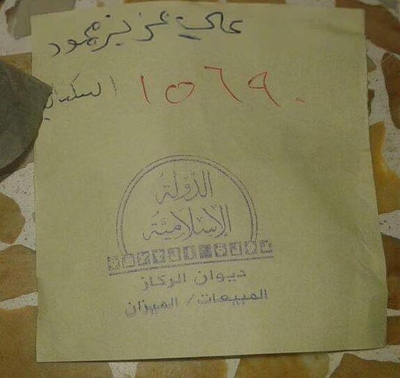 علي عزيز محمود
١٥٦٩٠
الدولة
الإسلامية
ديوان الركاز
المبيعات / الميزان